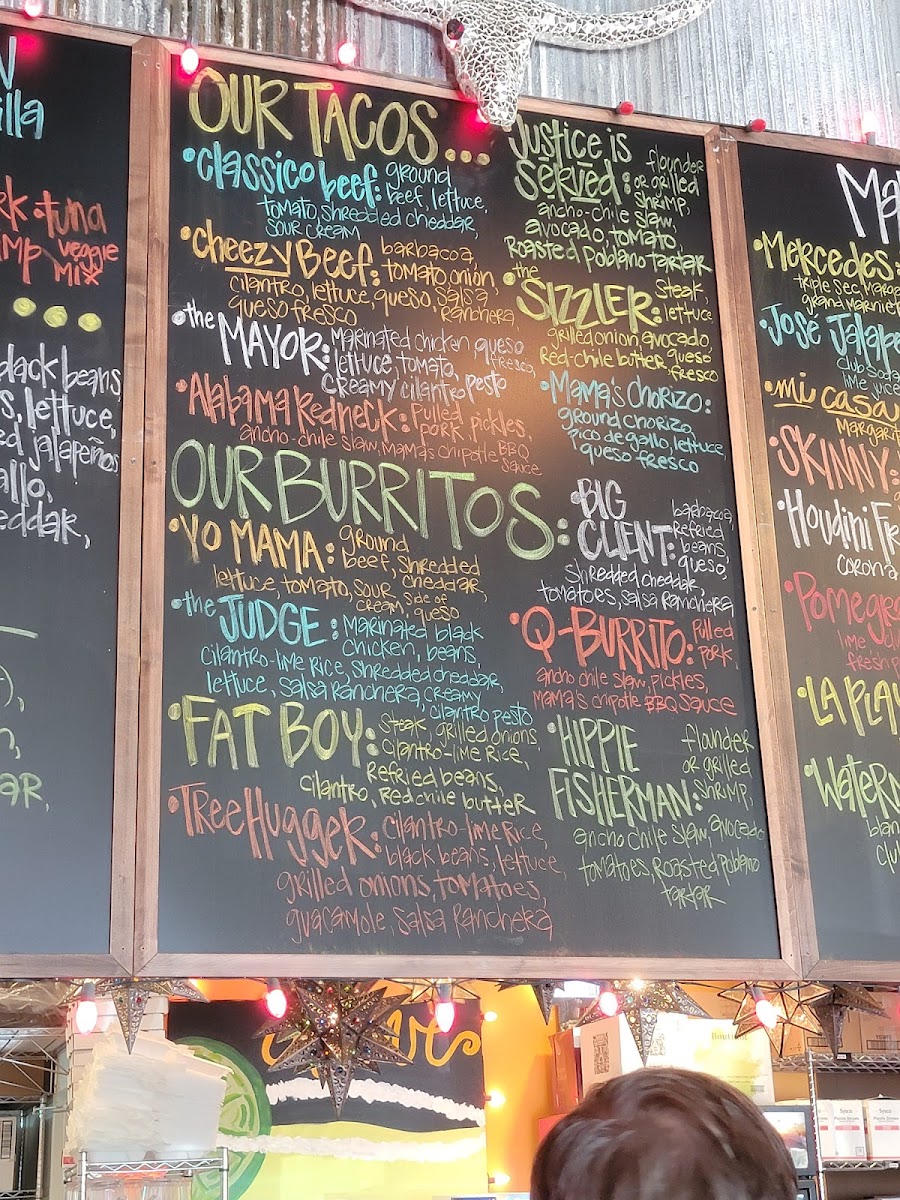 N
illa
RK • tuna
veggie
mix
black beans,
s, lettuce,
ed jalapeños
allo,
eddar,
AR,
OUR TACOS...
• Classico beef: ground
beef, lettuce,
tomato, shredded cheddar,
sour cream
• Cheezy Beef: barbacoa,
tomato, onion,
cilantro, lettuce, queso, salsa
Ranchera,
queso fresco
• the MAYOR: Marinated chicken, queso
fresco,
lettuce, tomato,
creamy cilantro pesto
• Alabama Redneck: pulled
pork, pickles,
ancho-chile slaw, Mama's chipotle BBQ
sauce
Justice is
served: flounder
or grilled
shrimp,
ancho-chile slaw,
avocado, tomato,
Roasted poblano tartar
• the
SIZZLER: Steak,
lettuce
grilled onion, avocado,
red-chile butter, queso
fresco
• Mama's Chorizo:
ground chorizo,
pico de gallo, lettuce,
queso fresco
OUR BURRITOS:
• YO MAMA: ground
beef, shredded
cheddar,
lettuce, tomato, sour
cream, side of
queso
• the JUDGE: Marinated black
chicken, beans,
cilantro-lime rice, shredded cheddar,
lettuce, salsa ranchera, creamy
cilantro pesto
• FAT BOY: Steak, grilled onions,
cilantro-lime rice,
Refried beans,
cilantro, red chile butter
• Tree Hugger: cilantro-lime rice,
black beans, lettuce,
grilled onions, tomatoes,
guacamole, salsa ranchera
• BIG
CLIENT: barbacoa,
refried
beans,
queso,
shredded cheddar,
tomatoes, salsa ranchera
• Q-BURRITO: Pulled
pork,
ancho chile slaw, pickles,
Mama's chipotle BBQ sauce
• HIPPIE
FISHERMAN: flounder
or grilled
shrimp,
ancho chile slaw, avocado
tomatoes, roasted poblano
tartar
Ma
• Mercedes:
triple sec, mara
grand marnie
• José Jalape
club soda
lime juice
• mi casa
Margarit
• SKINNY:
• Houdini Fr
corona
• Pomegra
lime jui
fresh p
• LA PLAY
• Waterm
blan
clu
Sysco
Sysco